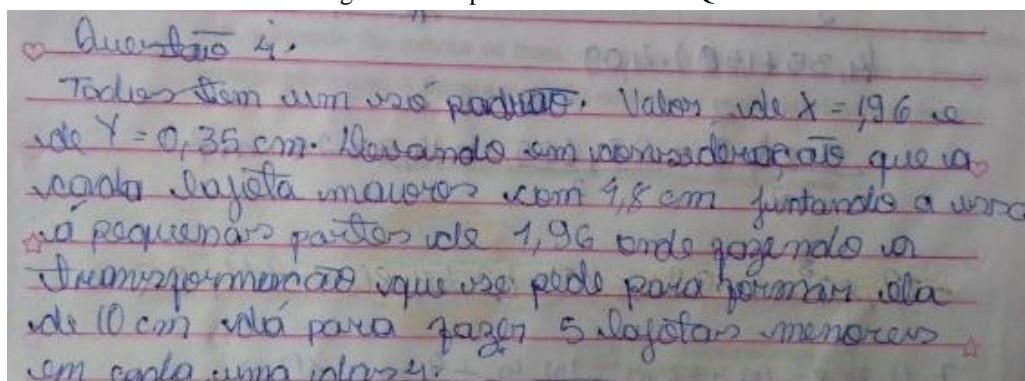 Questão 4.
Todos tem um só padrão. Valor de X = 1,96 e
de Y = 0,35 cm. Levando em consideração que a
cada lajota maiores com 4,8 cm juntando a isso
a pequenas partes de 1,96 onde fazendo a
transformação que se pede para formar ela
de 10 cm dá para fazer 5 lajotas menores
em cada uma